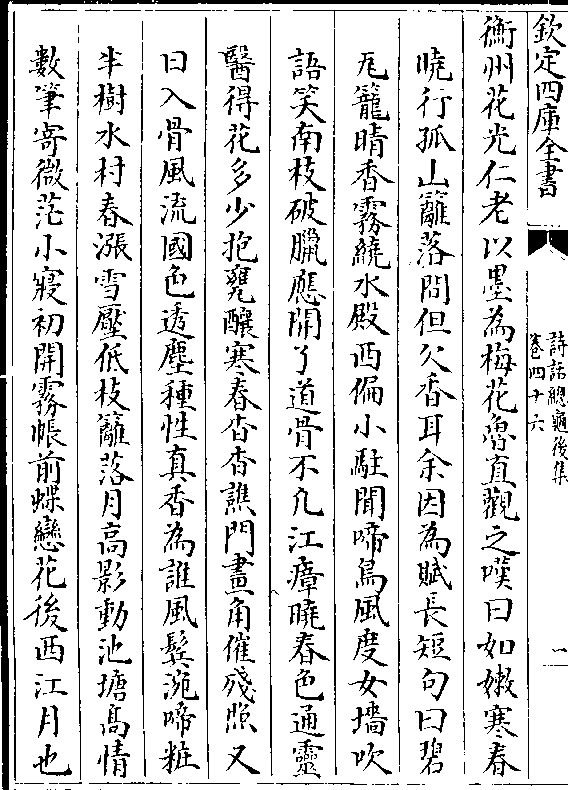 欽定四庫全書
詩話總龜後集
卷四十六
一
衡州花光仁老以墨為梅花魯直觀之嘆曰如嫩寒春
曉行孤山籬落間但欠香耳余因為賦長短句曰碧
瓦籠晴香霧繞水殿西偏小駐聞啼鳥風度女墻吹
語笑南枝破臘應開了道骨不凡江瘴曉春色通靈
醫得花多少抱甕釀寒春杳杳譙門畫角催殘照又
曰入骨風流國色透塵種性真香為誰風鬢涴啼粧
半樹水村春漲雪壓低枝籬落月高影動池塘髙情
數筆寄微茫小寢初開霧帳前蝶戀花後西江月也